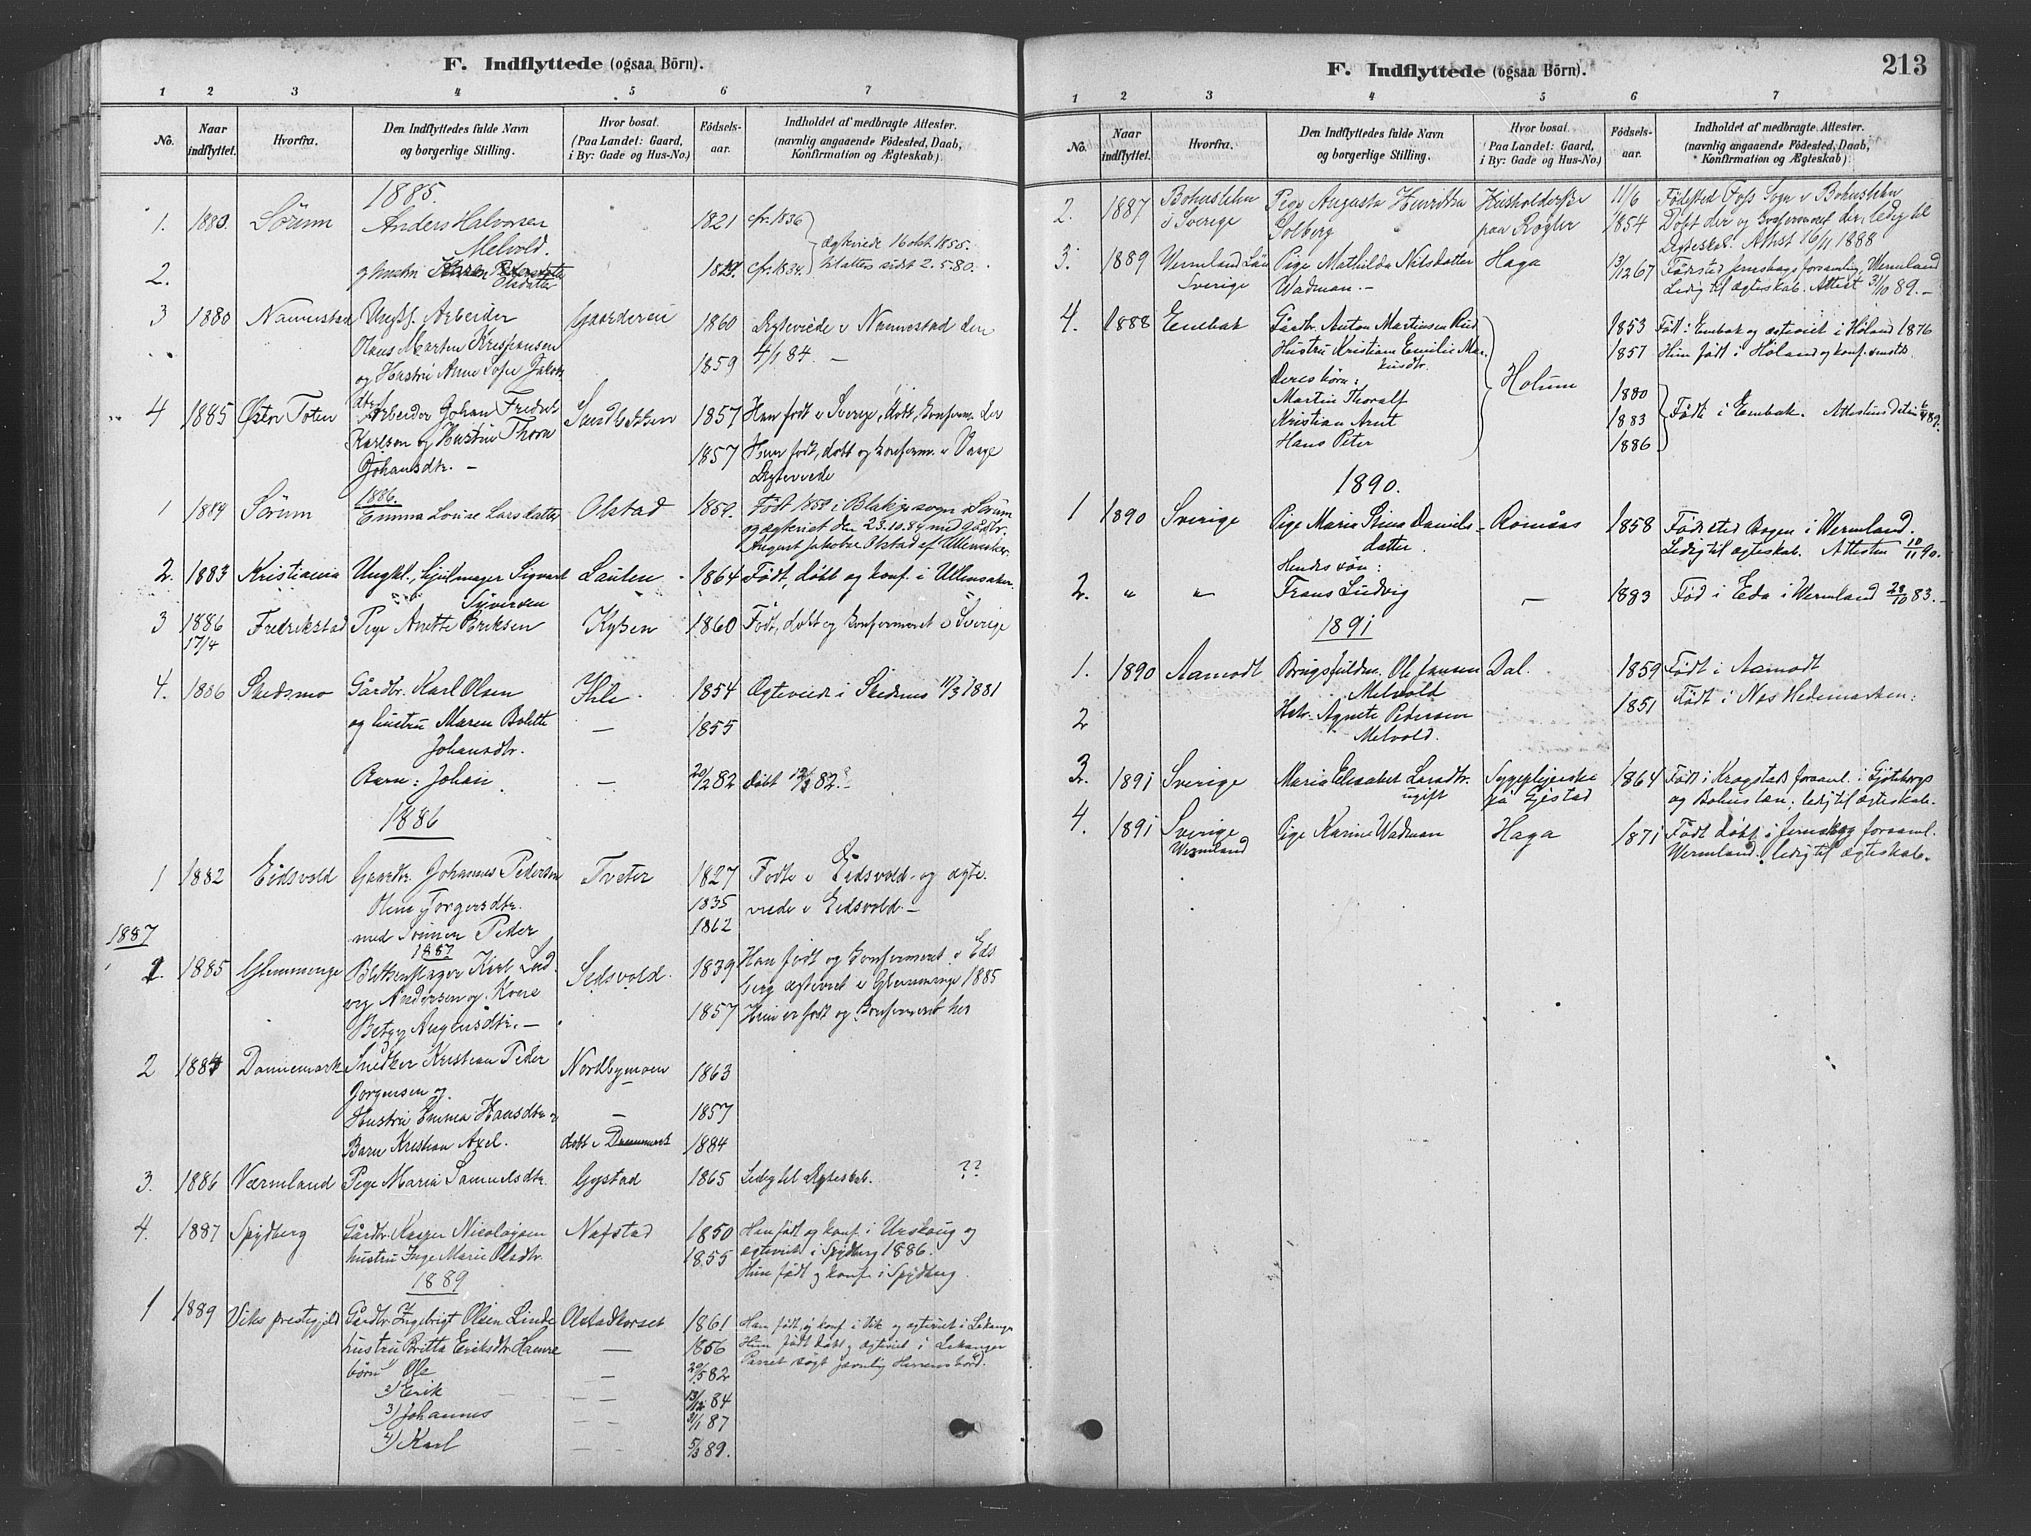 F. Indflyttede (ogsaa Börn).
1 2 3 4 5 6 7
No. Naar indflyttet. Hvorfra. Den Indflyttedes fulde Navn og borgerlige Stilling. Hvor bosat. (Paa Landet: Gaard, i By: Gade og Hus-No.) Födsels-aar. Indholdet af medbragte Attester. (navnlig angaaende Födested, Daab, Konfirmation og Ægteskab.)
1885.
1. 1880. Sörum Anders Halvorsen 1821 cfr. 1836
Melvold. Ægteviede 16 oct. 1855.
2. og hustru Olsdatter cfr. 1834
3 1880 Nannestad Ungk. Arbeider Gaarderen 1860 Ægteviede i Nannestad den
Olaus Marten Kristiansen 4/1 84. –
og Hustru Anne Sofie Jakobs 1859
dtr.
4 1885 Östre Toten Arbeider Johan Fredrik 1857 Han født i Sverige, døbt, Konfirm. der
Karlson og Hustru Thora 1857 Hun født, døbt og konfirm. i Vaage
Johansdtr. – Ægteviede
1886.
1 1884 Sörum Emma Louise Larsdatter Olstad 1859. Født 1859 i Blakjer sogn i Sörum
og ægteviet den 23.10.84 med Gårdbr.
August Jakobsen Olstad af Ullensaker.
2. 1883 Kristiania Ungkl. Hjulmager Sigvart Lauten 1864 Født, døbt og konf. i Ullensaker.
Syversen
3 1886 17/4 Fredrikstad Pige Anette Eriksen 1860 Født, døbt og Konfirmeret i Sverige
4. 1886 Skedsmo Gårdbr. Karl Olsen 1854 Ægteviede i Skedsmo 11/3 1881
og hustru Maren Bolette – 1855
Johansdtr.
Barn: Johan. – 20/2 82 Døbt 12/3 82.
1886
1 1882 Eidsvold Gaardbr. Johannes Pederson Tveter 1827 Födte i Eidsvold og ægte-
Oline Torgersdtr. 1835 viede i Eidsvold. –
med Sönnen Peder 1862
1887
1887
1. 1885 Glemminge Blikkenslager Karl Lud- 1839 Han født og Konfirmeret i Eids
vig Andersen og Kone berg ægteviet i Glemminge 1885
Betzy Augensdtr. – 1857 Hun er født og Konfirmeret her
2 1887 Dannemark Snedker Kristian Peder Nordbymoen 1863
Jörgensen og
Hustru Emma Hansdtr. – 1857
Barn Kristian Axel. døbt i Danmark 1884
3. 1886 Værmland Pige Maria Samuelsdtr. Gystad 1865 Ledig til Ægteskab. ??
4. 1887 Spydberg Gårdbr. Kasper Nicolaysen Nafstad 1850 Han født og konf. i Urskoug og
hustru Inge Marie Olsdtr. 1855 ægteviet i Spydberg 1886.
Hun født og konf. i Spydberg.
1889
1 1889 Viks prestegjeld Gårdbr. Ingebrigt Olsen Linde Olstadkorset 1861 Han født, og konf. i Vik og ægteviet i Lekanger
hustru Britta Eriksdtr. Hamre – 1856 Hun født døbt og ægteviet i Lekanger
börn 1) Ole – 29/5 82 Parret søgt jævnlig Herrens bord.
2) Erik – – 13/12 84
3) Johannes – – 31/1 87
4) Karl – 5/3 89.
F. Indflyttede (ogsaa Börn). 213
1 2 3 4 5 6 7
No. Naar indflyttet. Hvorfra. Den Indflyttedes fulde Navn og borgerlige Stilling. Hvor bosat. (Paa Landet: Gaard, i By: Gade og Hus-No.) Födsels-aar. Indholdet af medbragte Attester. (navnlig angaaende Födested, Daab, Konfirmation og Ægteskab.)
2. 1887 Bohuslehn Pige Augusta Henritta Husholderske 11/6 Fødested Foss Sogn i Bohuslehn
i Sverige Solberg paa Rögler 1854 Døbt der og Konfirmeret der, ledig til
Ægteskab. Attest 16/11 1888
3. 1889 Vermland Län Pige Mathilda Nilsdatter Haga 3/12 67 Fødested Jernskogs forsamling, Wermland
Sverige Wadman. – Ledig til ægteskab. Attest 31/10 89. –
4. 1888 Enebak Gårdbr. Anton Martinsen Rud 1853 Født i Enebak og ægteviet i Høland 1876
Hustru Kristiane Emilie Mar- 1857 Hun født i Høland og konf.
kusdtr.
Deres börn: Holum
Martin Thoralf 1880
Kristian Arnt 1883 Født i Enebak.
Hans Peter 1886
1890.
1 1890 Sverige Pige Maria Stina Daniels- Romsaas 1858 Fødested Bogen i Wermland.
datter. Ledig til ægteskab. Attesten 10/11 90.
Hendes søn:
2. " " Frans Ludvig – 1883 Fød i Eda i Wermland 28/10 83. –
1891
1. 1890 Aamodt Brugsfuldm. Ole Hansen Dal. 1859 Født i Aamodt
Melvold
2 Hstr. Agnete Pedersen 1851 Født i Næs Hedemarken.
Melvold.
3. 1891 Sverige Maria Elisabet Larsdtr. Sygepleierske 1864 Født i Krogstads forsaml. i Gøteborgs
ugift på Gjestad og Bohuslän; ledig til ægteskab.
4. 1891 Sverige Pige Karine Wadman Haga 1871 Født døbt i Jernskog forsaml.
Wermland Wermland. ledig til ægteskab.